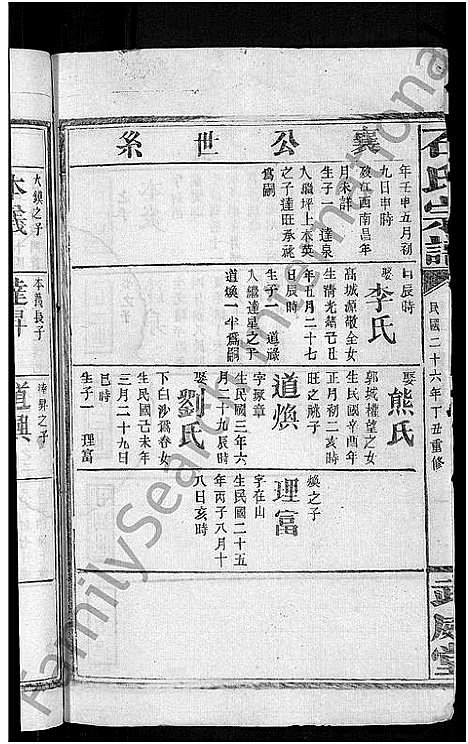 石氏宗譜
民國二十六年丁丑重修
武威堂
襄公世系
年壬申五月初
九日申時
歿江西南昌年
月未詳
生子一 達泉
大繼坪上本英
之子達旺承祧
爲嗣
日辰時
娶李氏
高城源敬全女
生清光緒己丑
年五月二十七
日辰時
生子一 道祿
入繼達星之子
道煥一半爲嗣
娶熊氏
郭城權望之女
生民國辛酉年
正月初二亥時
道煥
旺之祧子
字聚章
生民國三年六
月二十九辰時
娶劉氏
下白沙爲春女
生民國己未年
三月二十九日
巳時
生子一 理富
理富
煥之子
字在山
生民國二十五
年丙子八月十
八日亥時
大鎮之子
本義
本義長子
達昇
達昇之子
道興
FamilySearch International